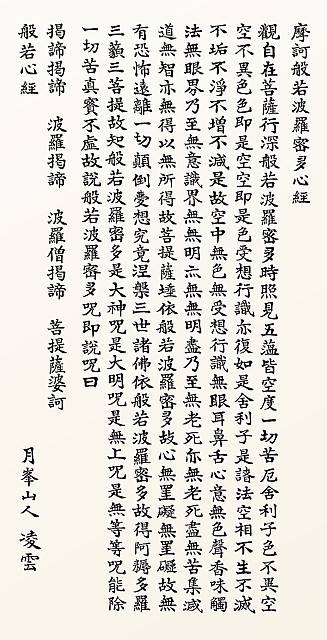 摩訶般若波羅密多心經
觀自在菩薩行深般若波羅密多時照見五蘊皆空度一切苦厄舍利子色不異空
空不異色色即是空空即是色受想行識亦復如是舍利子是諸法空相不生不滅
不垢不淨不增不減是故空中無色無受想行識無眼耳鼻舌心意無色聲香味觸
法無眼界乃至無意識界無無明亦無無明盡乃至無老死亦無老死盡無苦集滅
道無智亦無得以無所得故菩提薩埵依般若波羅密多故心無罣礙無罣礙故無
有恐怖遠離一切顛倒夢想究竟涅槃三世諸佛依般若波羅密多故得阿耨多羅
三藐三菩提故知般若波羅密多是大神呪是大明呪是無上呪是無等等呪能除
一切苦真實不虛故說般若波羅密多呪即說呪曰
揭諦揭諦 波羅揭諦 波羅僧揭諦 菩提薩婆訶
般若心經 月峯山人 凌雲